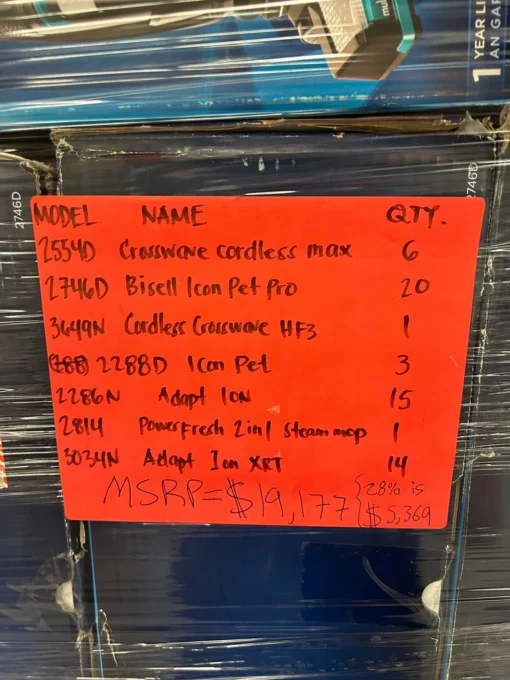 mul
1 YEAR LI
AN GAR
2746D
2746D
MODEL NAME QTY.
2554D Crosswave cordless max 6
2746D Bisell Icon Pet Pro 20
3649N Cordless Crosswave HF3 1
(288) 2288D Icon Pet 3
2286N Adapt ION 15
2814 PowerFresh 2in1 steam mop 1
3034N Adapt Ion XRT 14
MSRP=$19,177 {28% is
$5,369